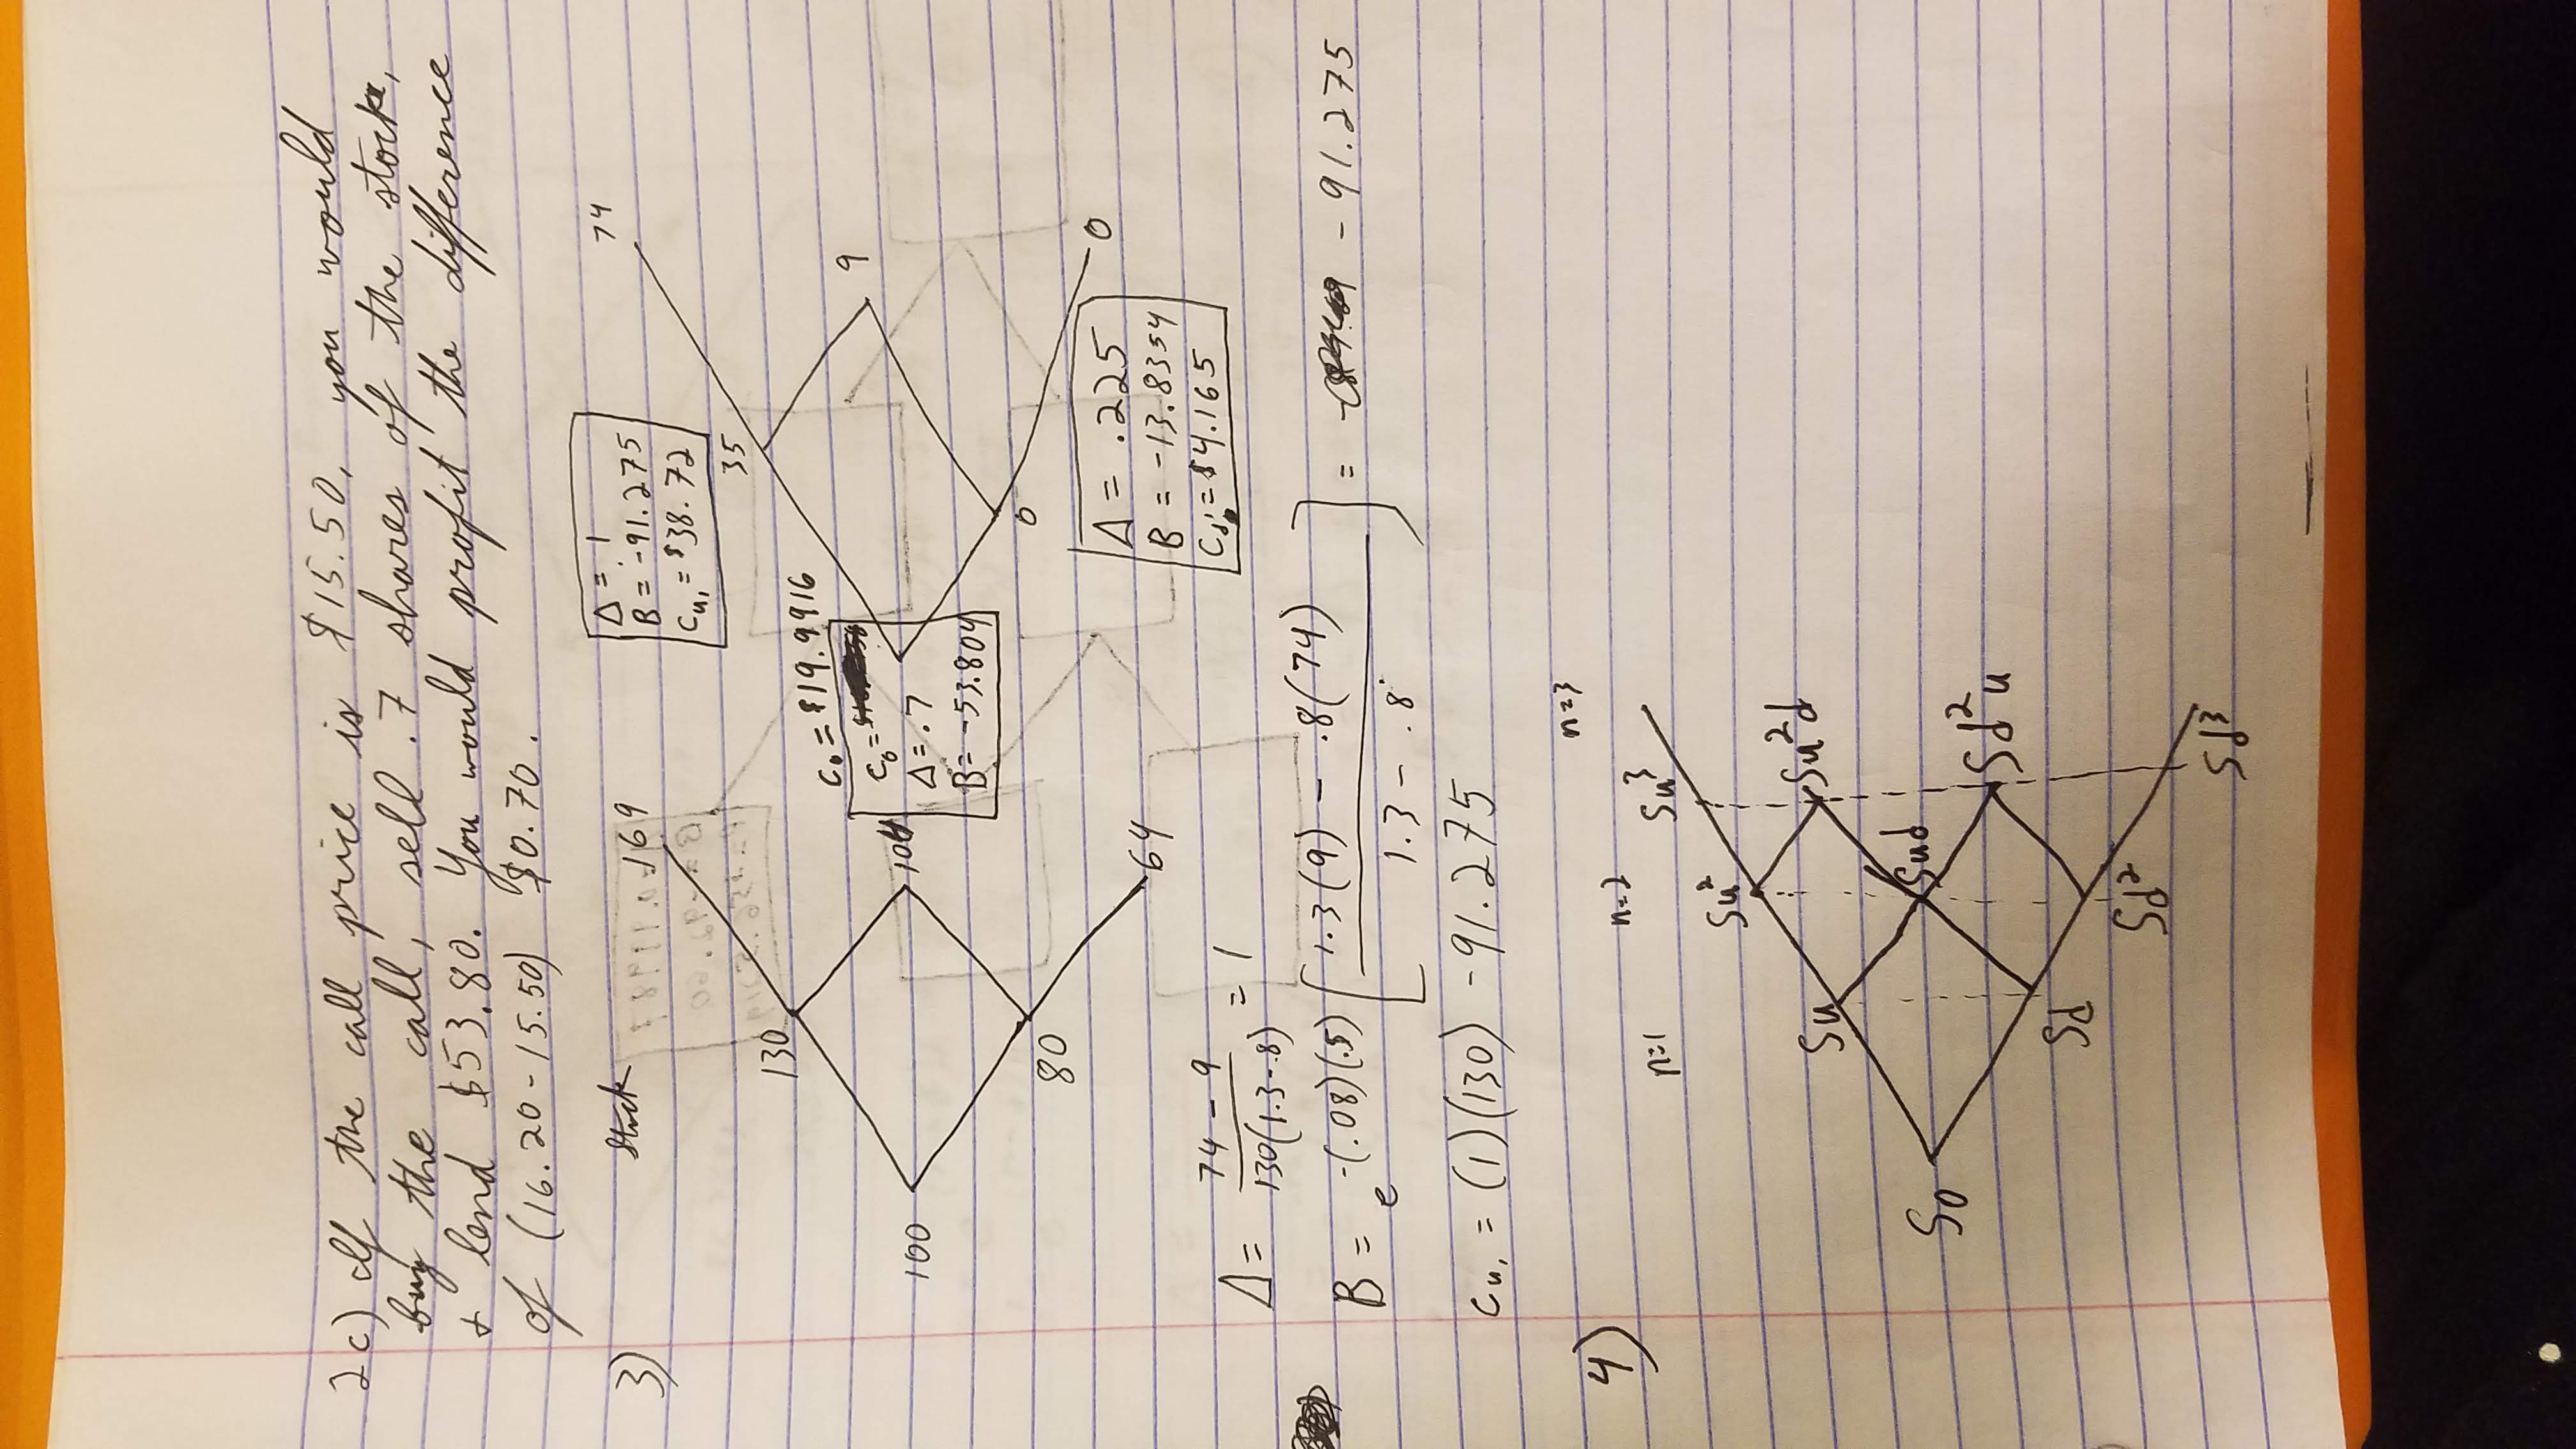 2c) If the call price is $15.50, you would
buy the call, sell .7 shares of the stock,
+ lend $53.80. You would profit the difference
of (16.20-15.50) $0.70.
3)
Stock
169
130
100
104
80
64
Δ = 1
B = -91.275
Cu, = $38.72
74
35
C₀ = $19.9916
C₀ =
Δ = .7
B = -53.804
9
0
0
Δ = .225
B = -13.8354
Cd, = $4.165
Δ = 74 - 9 / 130(1.3-.8) = 1
B = e^-(.08)(.5) [ 1.3(9) - .8(74) / 1.3 - .8 ] = -91.275
Cu, = (1)(130) - 91.275
4)
n=1
n=2
n=3
Su³
Su²
Su
Su²d
S₀
Sud
Sd²u
Sd
Sd²
Sd³